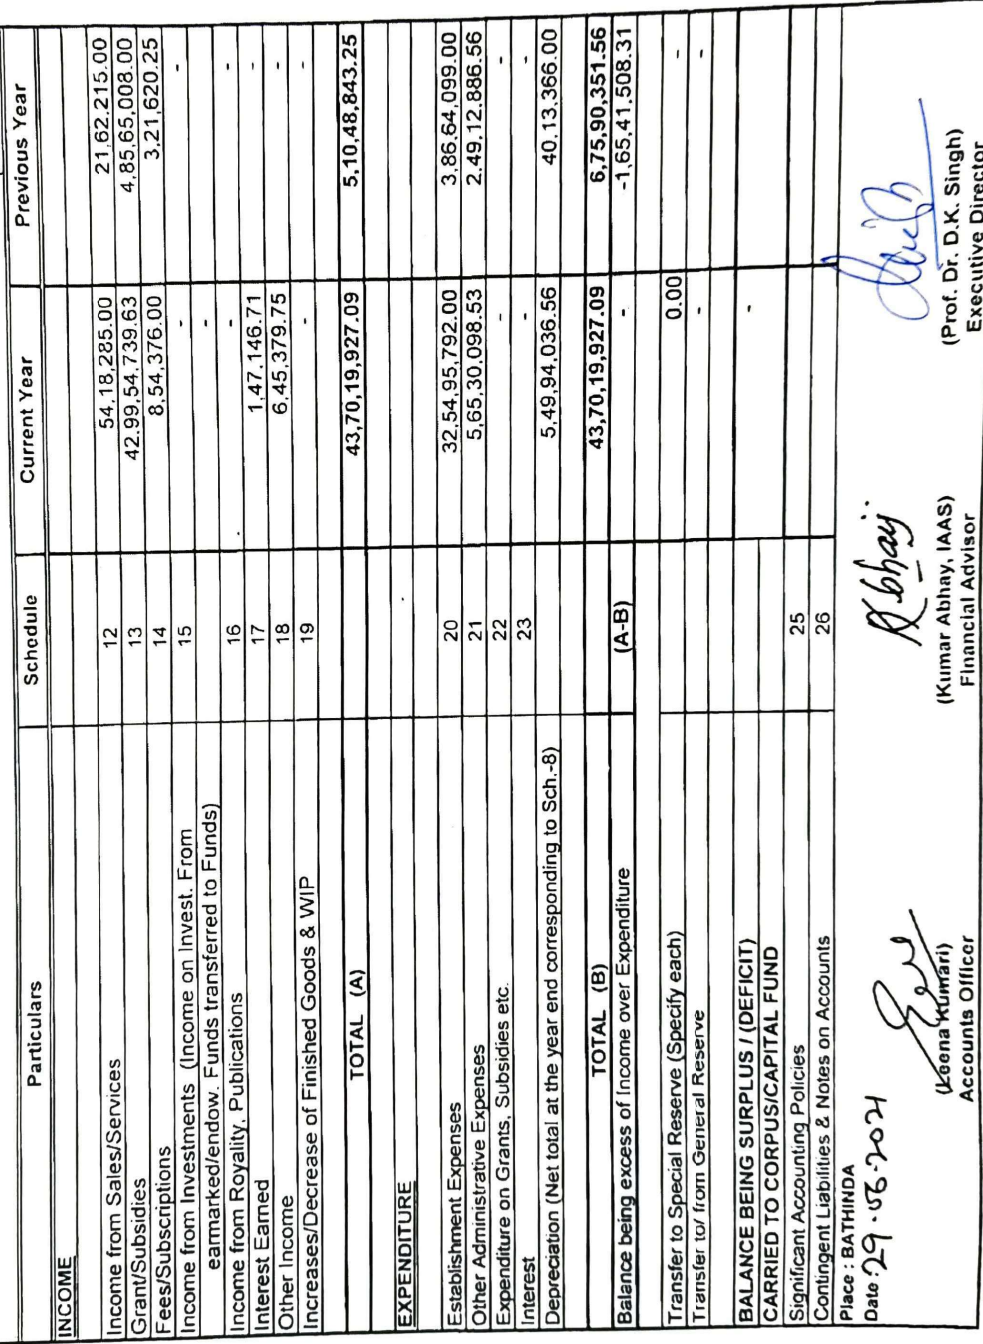 Particulars Schedule Current Year Previous Year
INCOME
Income from Sales/Services 12 54,18,285.00 21,62,215.00
Grant/Subsidies 13 42,99,54,739.63 4,85,65,008.00
Fees/Subscriptions 14 8,54,376.00 3,21,620.25
Income from Investments (Income on Invest. From 15 - -
earmarked/endow. Funds transferred to Funds) -
Income from Royality, Publications 16 - -
Interest Earned 17 1,47,146.71 -
Other Income 18 6,45,379.75 -
Increases/Decrease of Finished Goods & WIP 19 - -
TOTAL (A) 43,70,19,927.09 5,10,48,843.25
EXPENDITURE
Establishment Expenses 20 32,54,95,792.00 3,86,64,099.00
Other Administrative Expenses 21 5,65,30,098.53 2,49,12,886.56
Expenditure on Grants, Subsidies etc. 22 - -
Interest 23 - -
Depreciation (Net total at the year end corresponding to Sch.-8) 5,49,94,036.56 40,13,366.00
TOTAL (B) 43,70,19,927.09 6,75,90,351.56
Balance being excess of Income over Expenditure (A-B) - -1,65,41,508.31
Transfer to Special Reserve (Specify each) 0.00 -
Transfer to/ from General Reserve - -
BALANCE BEING SURPLUS / (DEFICIT) -
CARRIED TO CORPUS/CAPITAL FUND
Significant Accounting Policies 25
Contingent Liabilities & Notes on Accounts 26
Place : BATHINDA
Date : 29.06.2021
Abhay
(Leena Kumari) (Kumar Abhay, IAAS) (Prof. Dr. D.K. Singh)
Accounts Officer Financial Advisor Executive Director